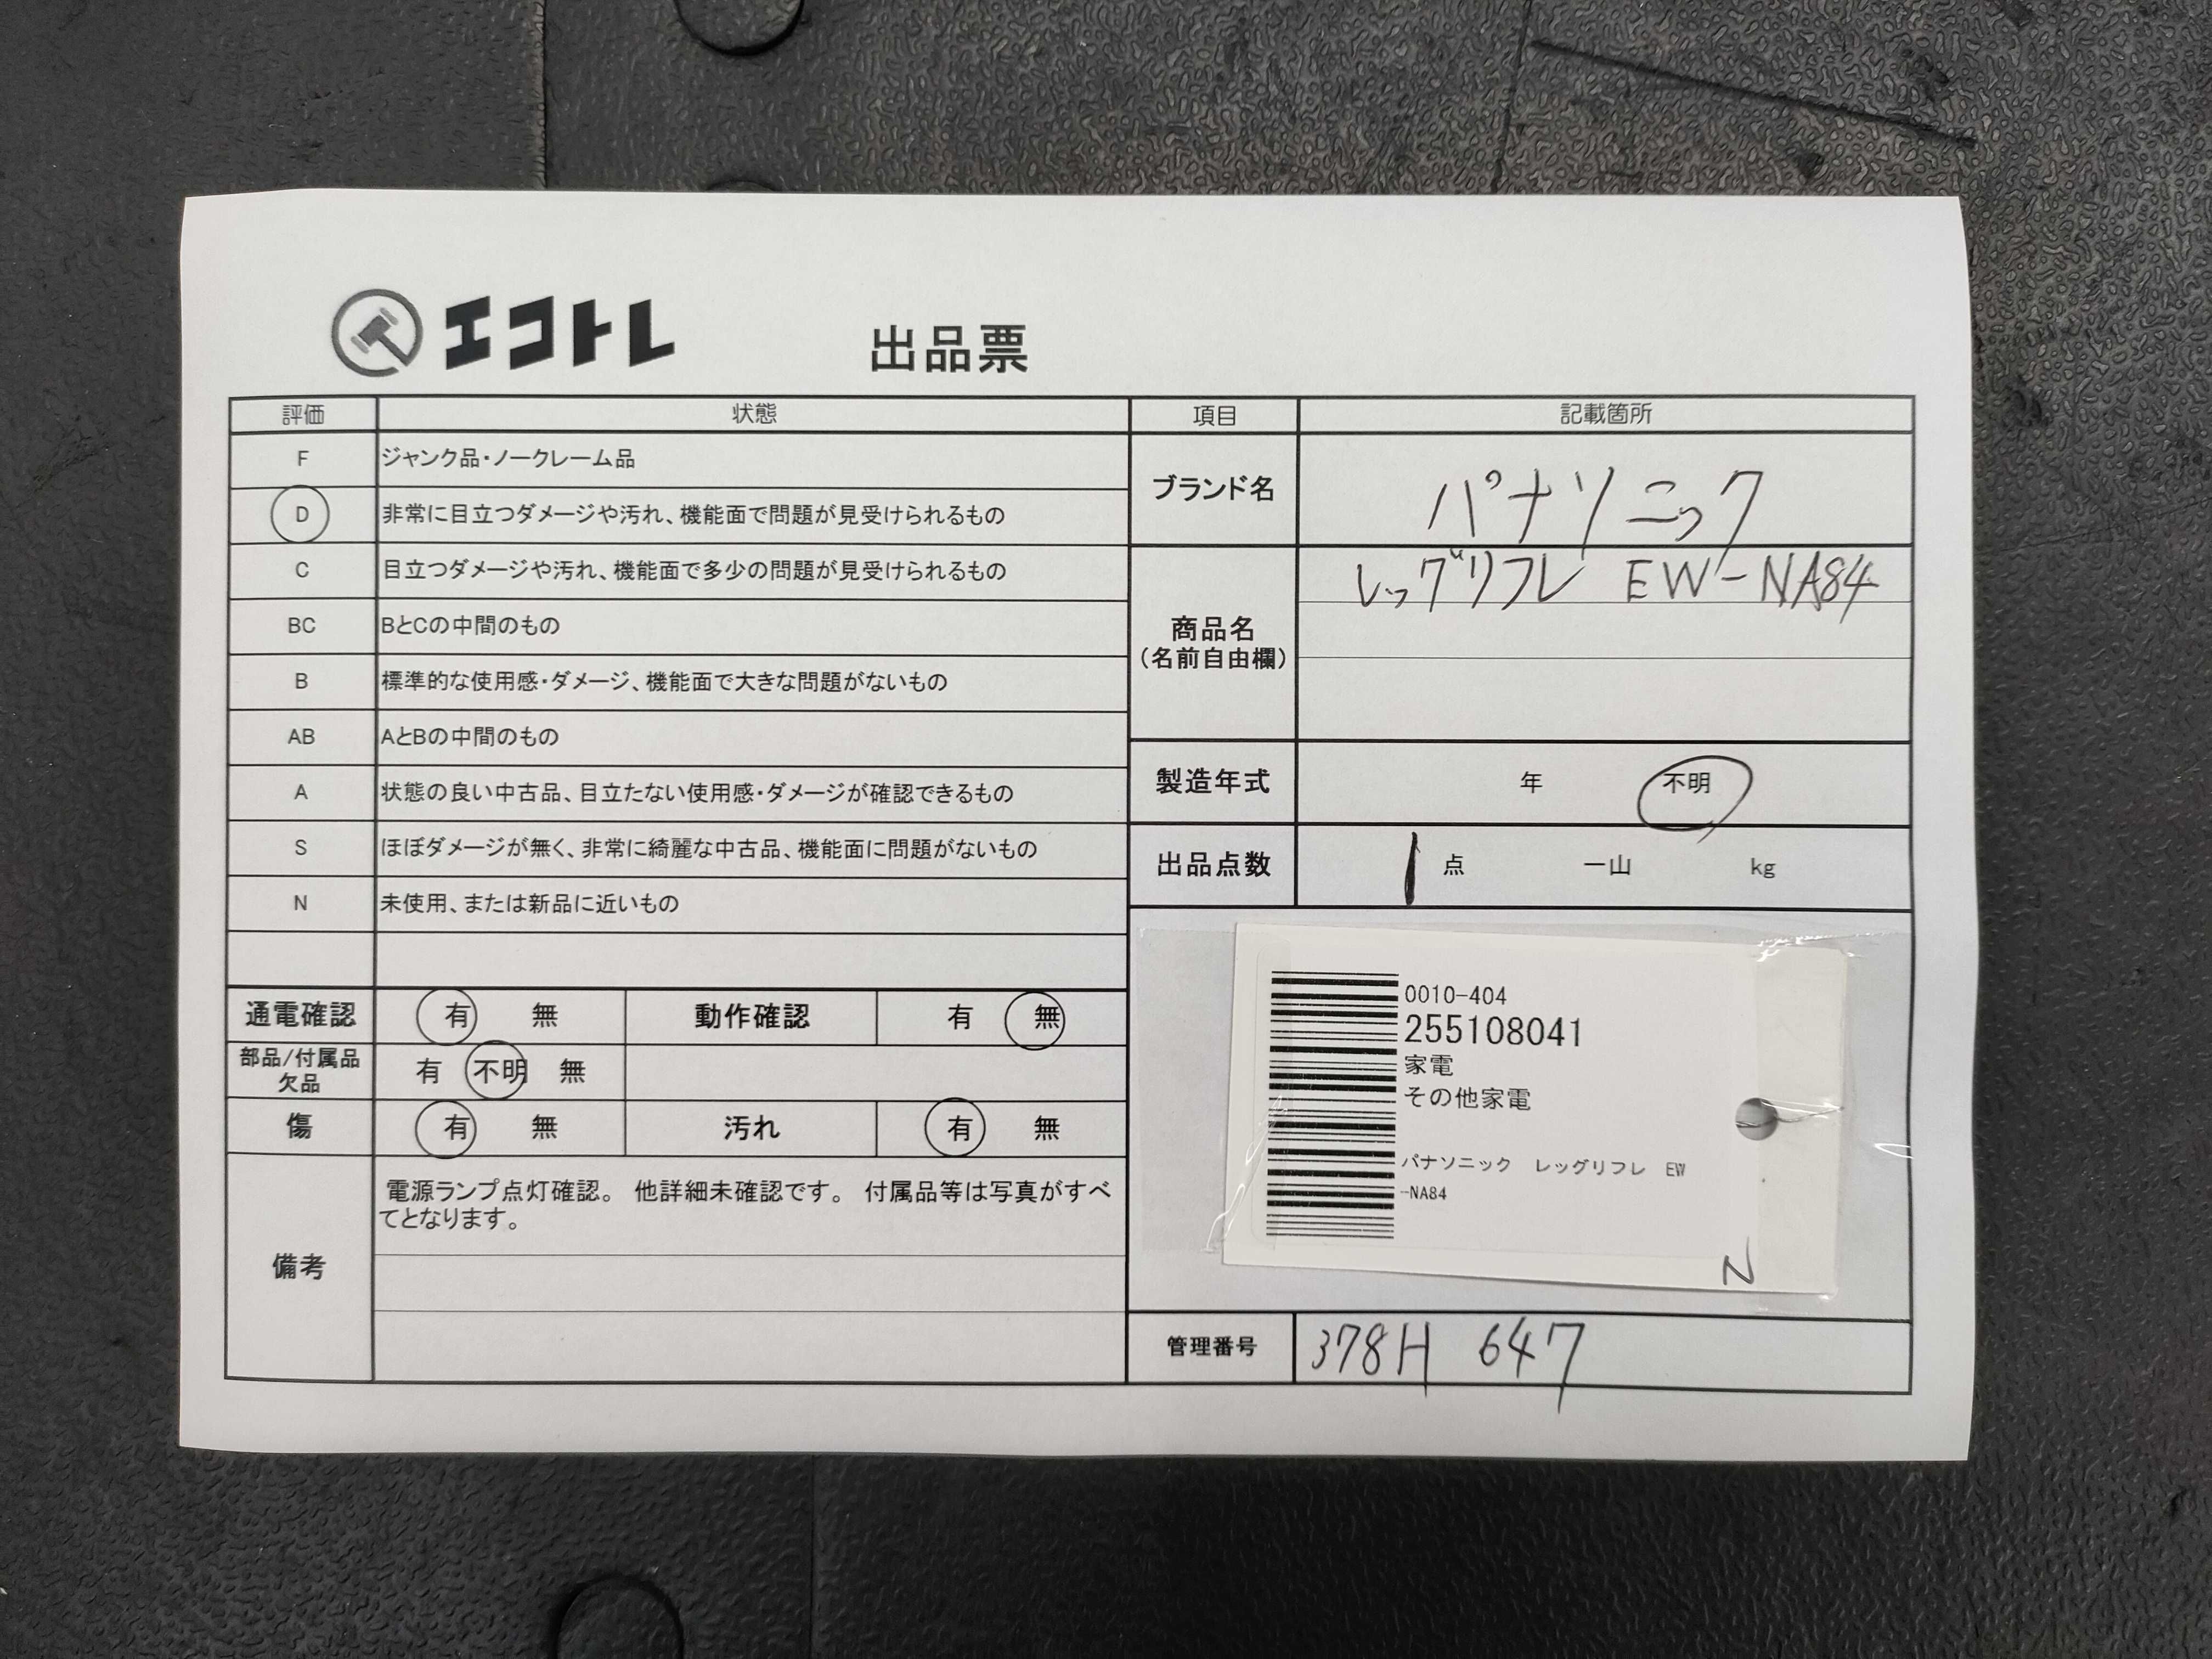 エコトレ
出品票
評価 状態
F ジャンク品・ノークレーム品
D 非常に目立つダメージや汚れ、機能面で問題が見受けられるもの
C 目立つダメージや汚れ、機能面で多少の問題が見受けられるもの
BC BとCの中間のもの
B 標準的な使用感・ダメージ、機能面で大きな問題がないもの
AB AとBの中間のもの
A 状態の良い中古品、目立たない使用感・ダメージが確認できるもの
S ほぼダメージが無く、非常に綺麗な中古品、機能面に問題がないもの
N 未使用、または新品に近いもの
通電確認 有 無 動作確認 有 無
部品/付属品
欠品
有 不明 無
傷 有 無 汚れ 有 無
備考
電源ランプ点灯確認。 他詳細未確認です。 付属品等は写真がすべ
てとなります。
項目 記載箇所
ブランド名 パナソニック
商品名
(名前自由欄)
レッグリフレ EW-NA84
製造年式 年 不明
出品点数 1 点 一山 kg
0010-404
255108041
家電
その他家電
パナソニック レッグリフレ EW
-NA84
N
管理番号 378H 647